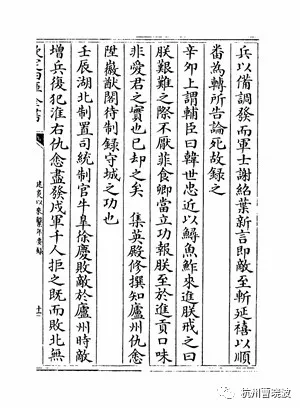 兵以備調發而軍士謝紹葉新言即敵至斬延禧以順
番為轉所告論死故録之
辛卯上謂輔臣曰韓世忠近以鱘魚鮓來進朕戒之曰
朕艱難之際不厭菲食卿當立功報朕至於進貢口味
非愛君之實也已却之矣　集英殿修撰知廬州仇悆
陞徽猷閣待制録守城之功也
壬辰湖北制置司統制官牛臯徐慶敗敵於廬州時敵
增兵復犯淮右仇悆盡發戍軍千人拒之既而敗北無
建炎以來繫年要録
杭州曹晓波